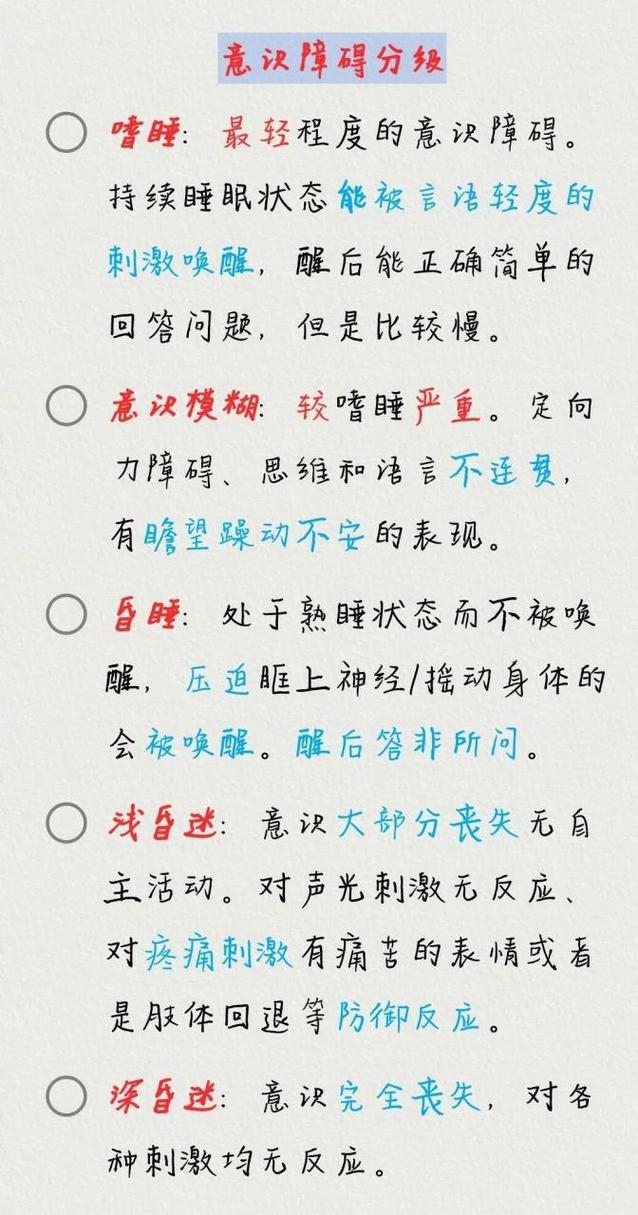 意识障碍分级
嗜睡：最轻程度的意识障碍。
持续睡眠状态能被言语轻度的
刺激唤醒，醒后能正确简单的
回答问题，但是比较慢。
意识模糊：较嗜睡严重。定向
力障碍、思维和语言不连贯，
有瞻望躁动不安的表现。
昏睡：处于熟睡状态而不被唤
醒，压迫眶上神经/摇动身体的
会被唤醒。醒后答非所问。
浅昏迷：意识大部分丧失无自
主活动。对声光刺激无反应、
对疼痛刺激有痛苦的表情或者
是肢体回退等防御反应。
深昏迷：意识完全丧失，对各
种刺激均无反应。